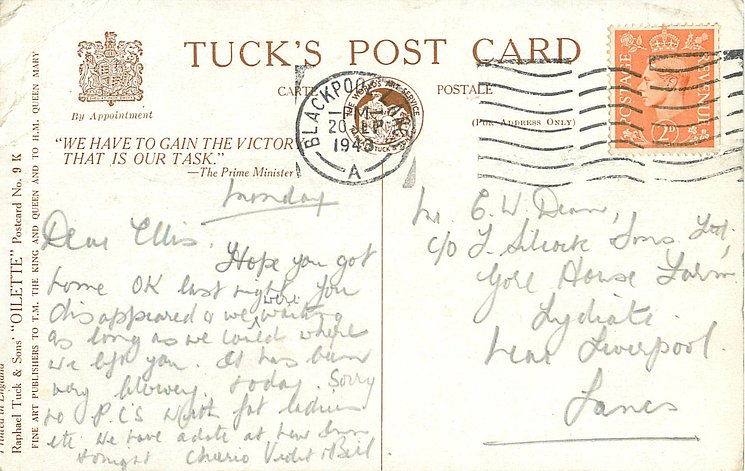 TUCK'S POST CARD
CARTE POSTALE
(FOR ADDRESS ONLY)
By Appointment
"WE HAVE TO GAIN THE VICTOR
THAT IS OUR TASK."
—The Prime Minister
BLACKPOOL LANCS
20 SEP
1943
A
POSTAGE REVENUE
2D
Monday
Dear Ellis.
Hope you got
home OK last night. You
disappeared & we were waiting
as long as we could where
we left you. It has been
very blowey today. Sorry
no P.C's with fat ladies
etc. We have a date at New Inn
tonight Cheerio Vedit & Bill
Mr. E. W. Dean,
c/o J. Silcock Sons Ltd,
Gore House Farm
Lydiate
near Liverpool
Lancs
Printed in England
Raphael Tuck & Sons' "OILETTE" Postcard No. 9 K
FINE ART PUBLISHERS TO T.M. THE KING AND QUEEN AND TO H.M. QUEEN MARY